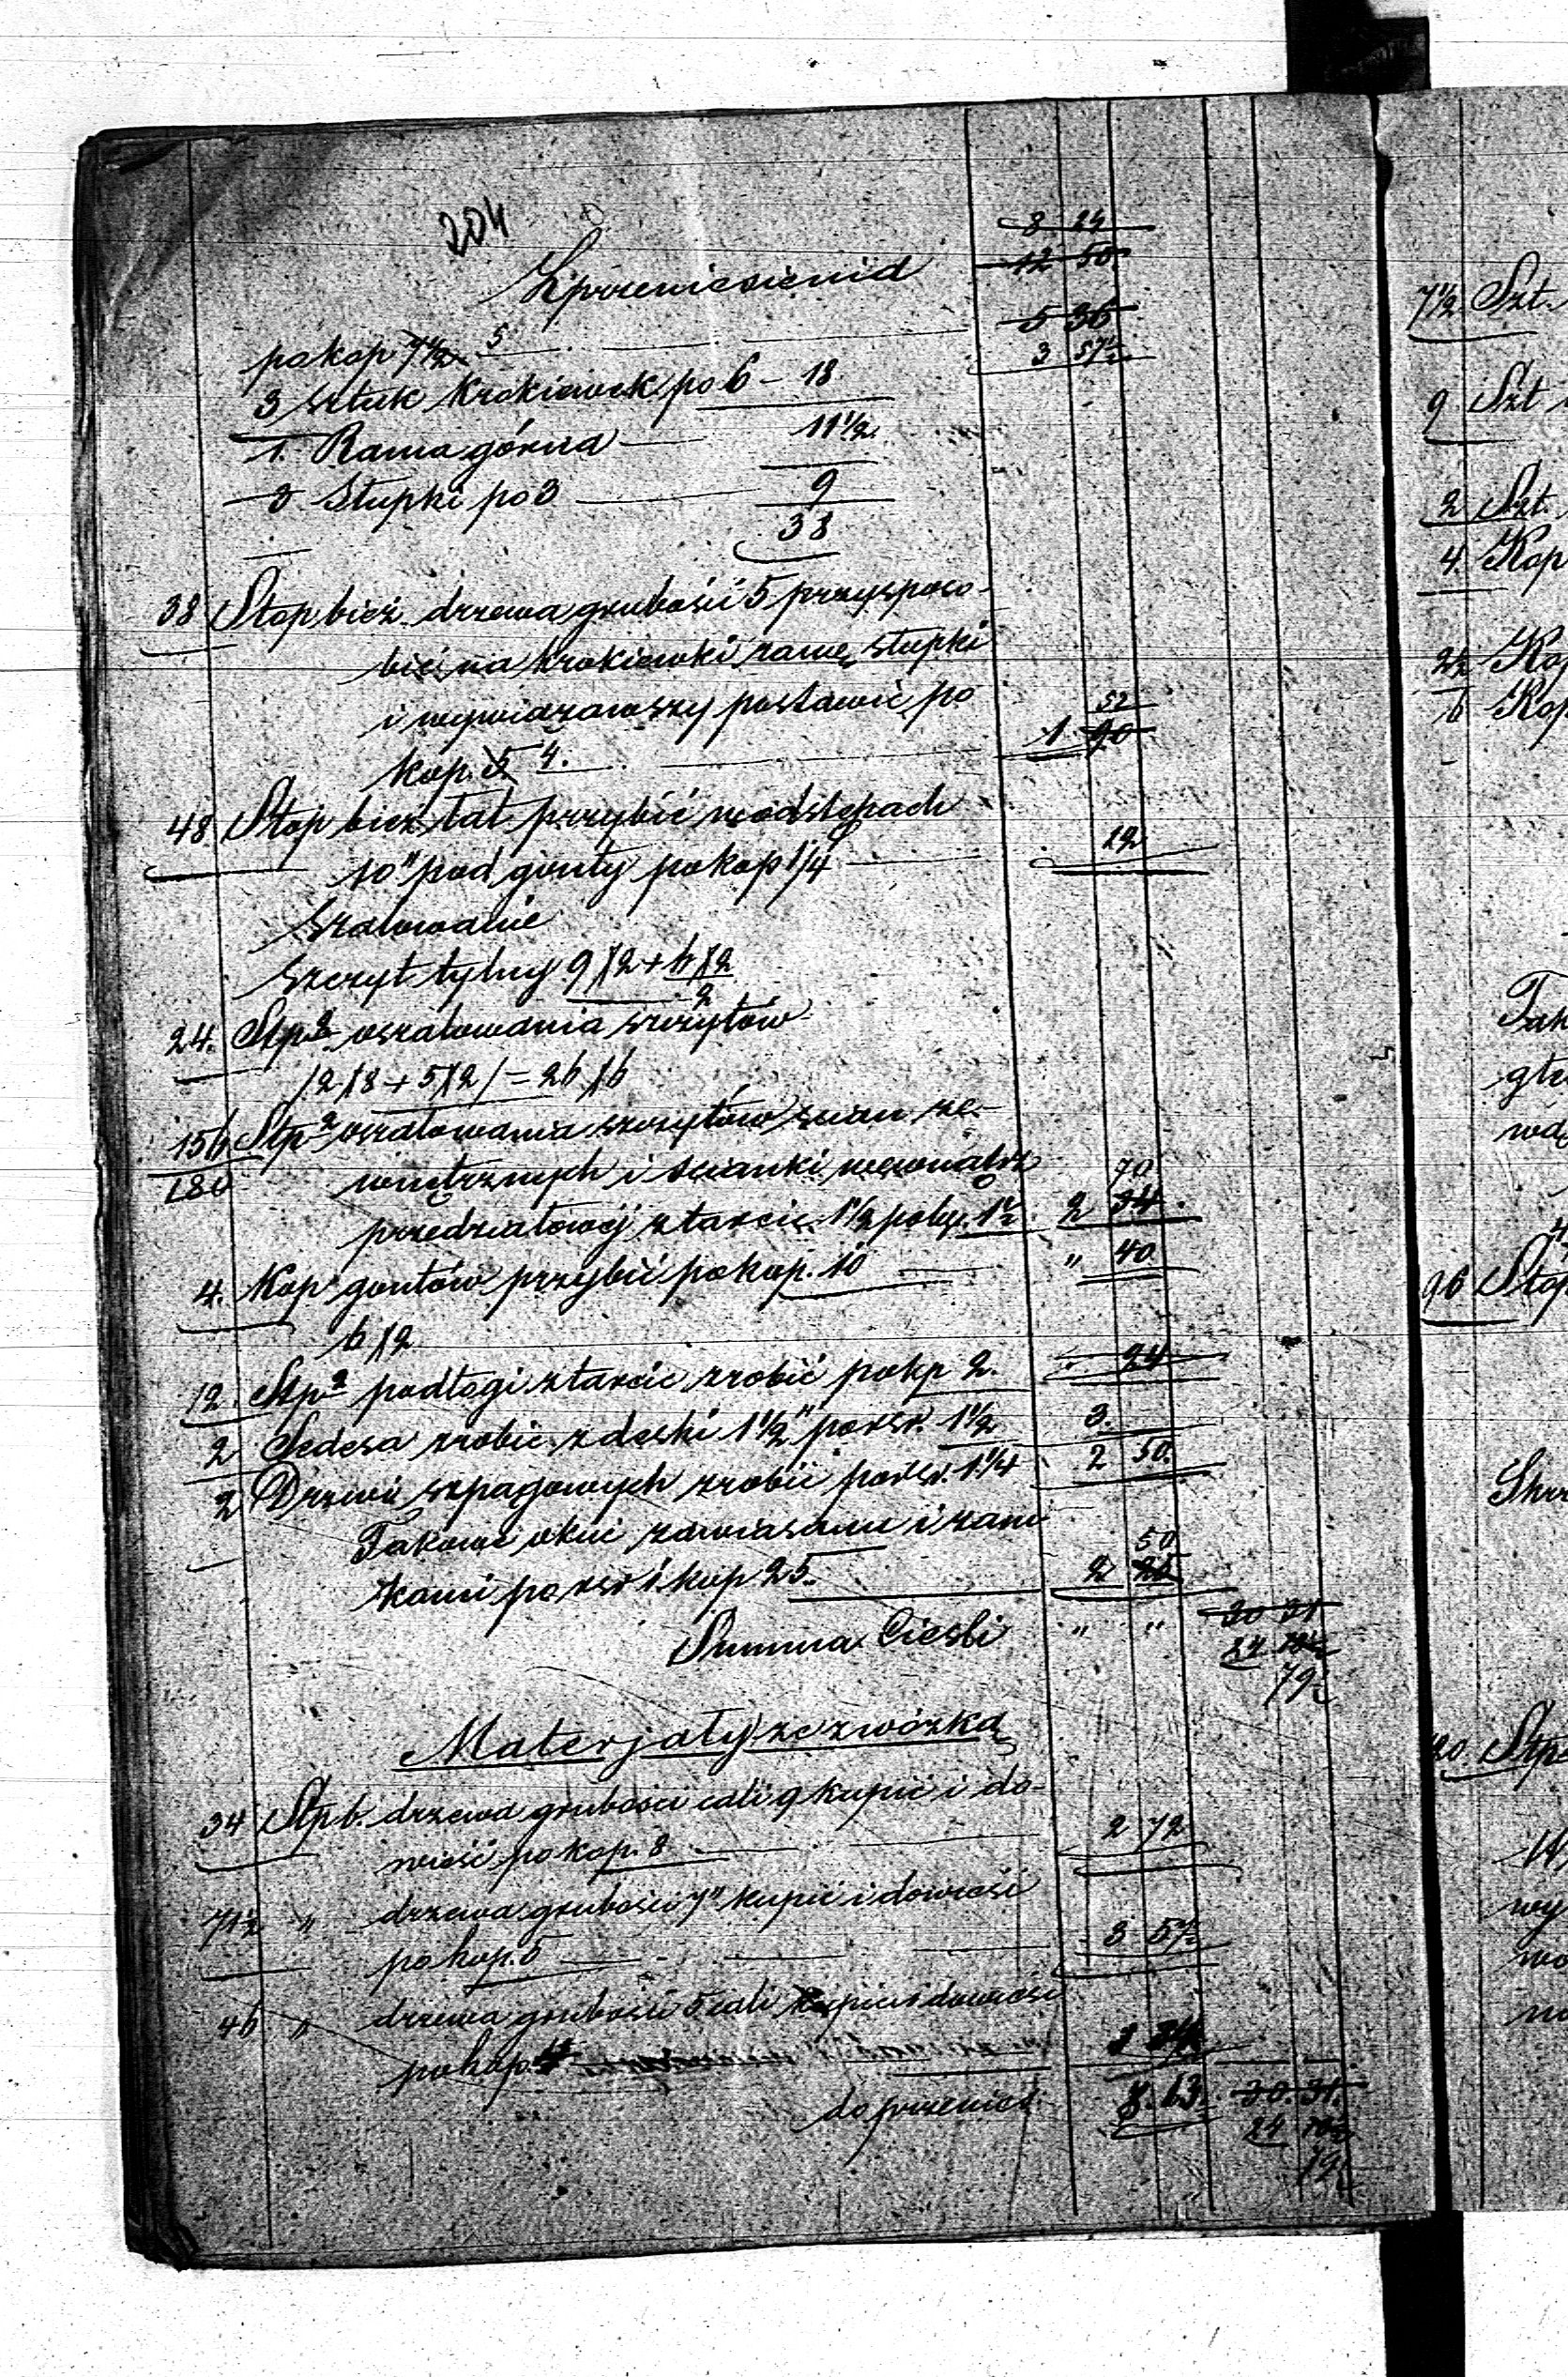 204
8 24
Z przeniesienia 12 50
5 36
po kop 7½ 5 3 57½
3 sztuk Krokiewek po 6 – 18
1. Rama górna — 11½
3 Słupki po 3 — 9
38
38 Stop bież. drzewa grubości 5 przysposo-
bić na krokiewki ramę, słupki
i wywiązawszy postawić po 52
kop. 5 4. 1 90
48 Stop bież łat przybić w odstępach
10" pod gonty po kop 1/4 12
Szalowanie
Szczyt tylny 9/2 + 6/2
2
24. Stp2 oszalowania szczytów
/2/8 + 5/2/ = 26/6
156 Stp2 oszalowania szczytów ścian ze-
180 wnętrznych i ścianki wewnątrz 70
przedziałowej z tarcic 1½ po kop. 1½ 2 34
4. Kop gontów przybić po kop. 10 " 40
6/2
12. Stp2 podłogi z tarcic zrobić po kp 2. 24
2 Sedesa zrobić z deski 1½" po rsr. 1½ 3.
2 Drzwi szpagowych zrobić po rsr. 1¼ 2 50.
Takowe okuć zawiasami i zam- 50
kami po rsr 1 kop 25. 2 25
Summa Cieśli " " 20 31
24 78½
79½
Materjały ze zwózką
34 Stp b. drzewa grubości cali 9 kupić i do-
wieść po kop. 8 2 72
71½ " drzewa grubości 7" kupić i dowieść
po kop. 5 3 57½
46 " drzewa grubości 5 cali kupić i dowieść
po kop. 4
do przenies. 8. 13. 30. 31.
24 78½
79½
7½ Szt.
9 Szt
2 Szt.
4. Kop
2½ Kop
6 Kop
96 Stop